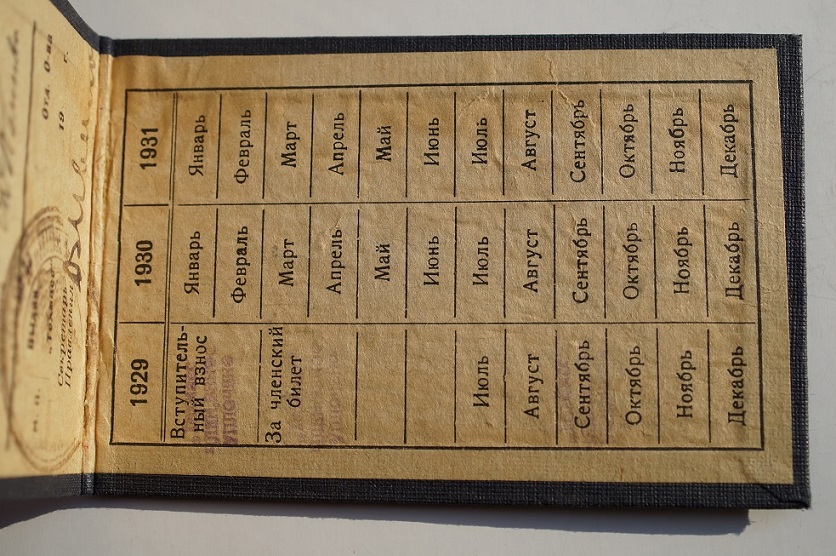 М. П.
Отд. О-ва
19 г.
Секретарь
Правления
1929 1930 1931
Вступитель- Январь Январь
ный взнос Февраль Февраль
За членский Март Март
билет Апрель Апрель
Май Май
Июнь Июнь
Июль Июль Июль
Август Август Август
Сентябрь Сентябрь Сентябрь
Октябрь Октябрь Октябрь
Ноябрь Ноябрь Ноябрь
Декабрь Декабрь Декабрь